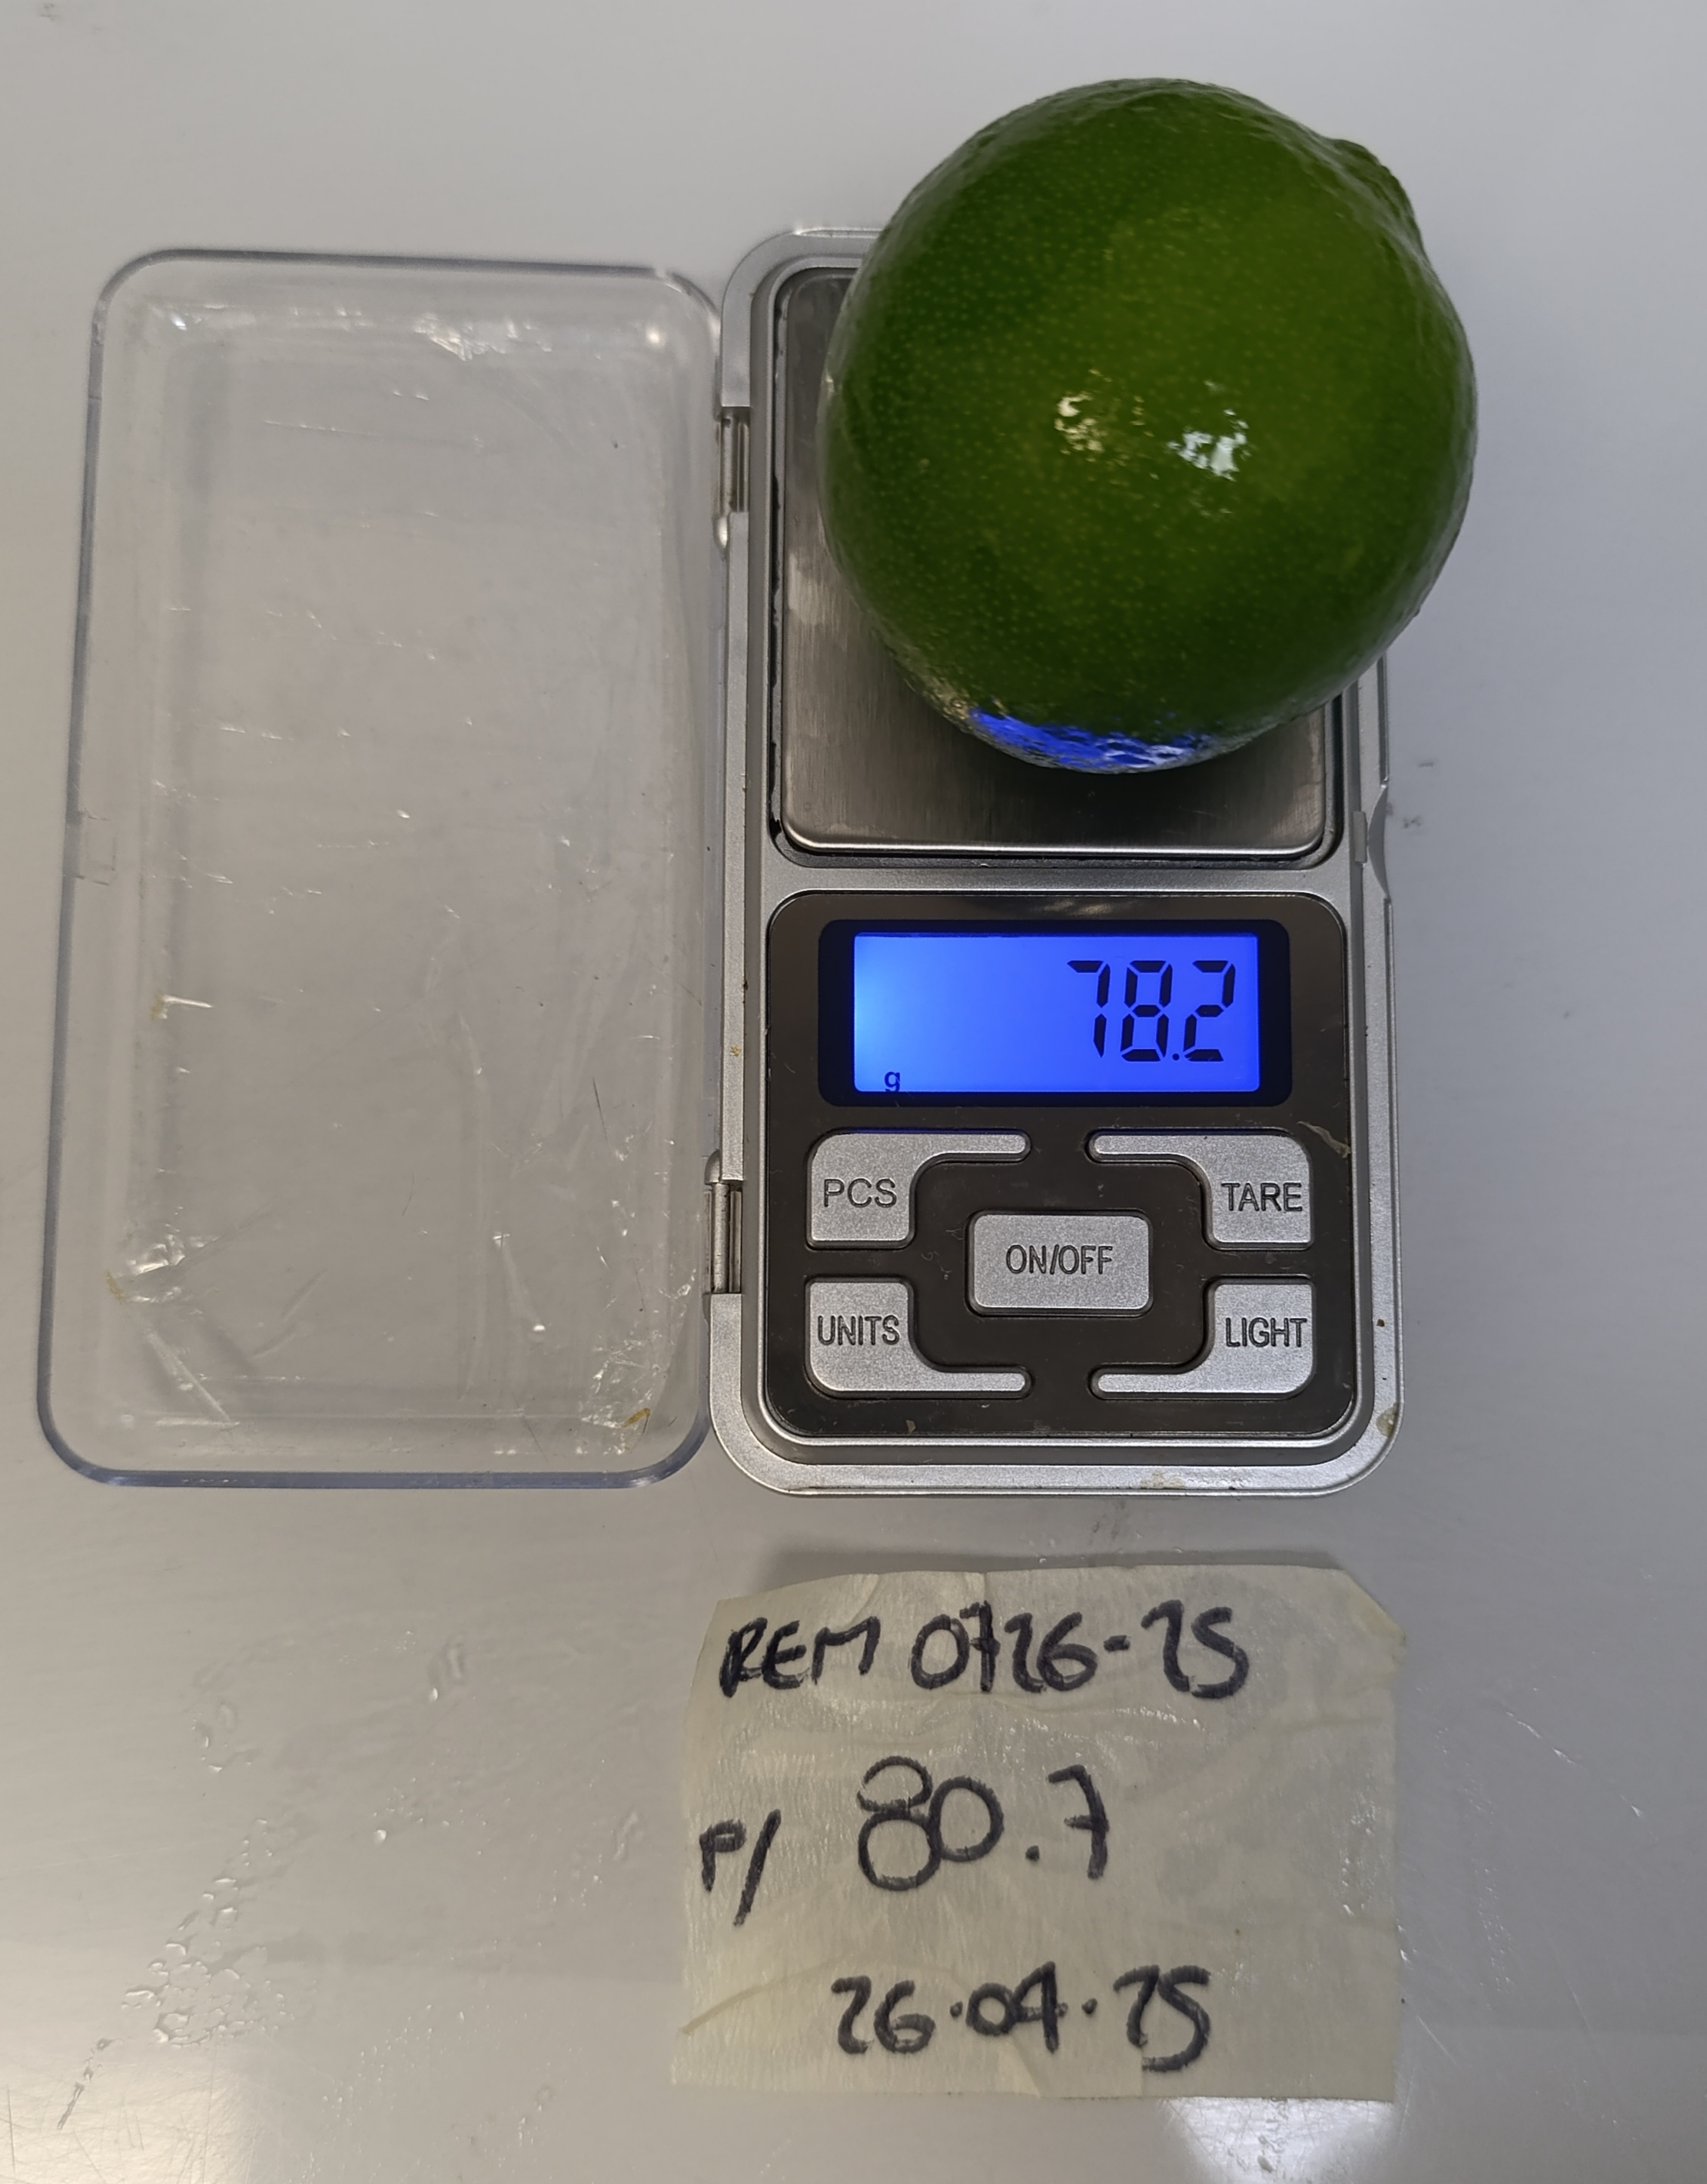 78.2
g
PCS
TARE
ON/OFF
UNITS
LIGHT
REM 0726-25
P/ 80.7
26.04.25